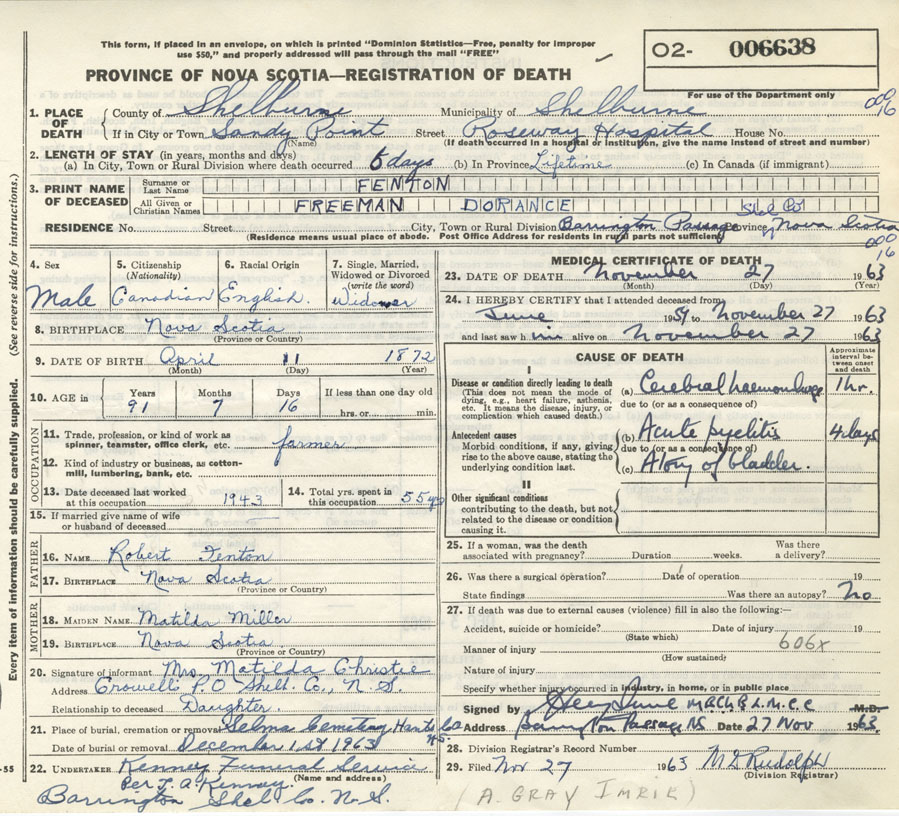 This form, if placed in an envelope, on which is printed "Dominion Statistics—Free, penalty for improper
use $50," and properly addressed will pass through the mail "FREE"
PROVINCE OF NOVA SCOTIA—REGISTRATION OF DEATH
02- 006638
For use of the Department only
1. PLACE OF DEATH
County of Shelburne Municipality of Shelburne
If in City or Town Sandy Point Street Roseway Hospital House No.
(Name) (If death occurred in a hospital or institution, give the name instead of street and number)
2. LENGTH OF STAY (in years, months and days)
(a) In City, Town or Rural Division where death occurred 6 days (b) In Province Lifetime (c) In Canada (if immigrant)
3. PRINT NAME OF DECEASED
Surname or Last Name FENTON
All Given or Christian Names FREEMAN DORANCE
Shel Co
RESIDENCE No. Street City, Town or Rural Division Barrington Passage Province Nova Scotia
(Residence means usual place of abode. Post Office Address for residents in rural parts not sufficient)
000
16
4. Sex Male
5. Citizenship (Nationality) Canadian
6. Racial Origin English.
7. Single, Married, Widowed or Divorced (write the word) Widower
8. BIRTHPLACE Nova Scotia
(Province or Country)
9. DATE OF BIRTH April 11 1872
(Month) (Day) (Year)
10. AGE in Years 91 Months 7 Days 16 If less than one day old
hrs. or min.
OCCUPATION
11. Trade, profession, or kind of work as
spinner, teamster, office clerk, etc. farmer
12. Kind of industry or business, as cotton-
mill, lumbering, bank, etc.
13. Date deceased last worked
at this occupation 1943
14. Total yrs. spent in
this occupation 55 yrs
15. If married give name of wife
or husband of deceased
FATHER
16. NAME Robert Fenton
17. BIRTHPLACE Nova Scotia
(Province or Country)
MOTHER
18. MAIDEN NAME Matilda Miller
19. BIRTHPLACE Nova Scotia
(Province or Country)
20. Signature of informant Mrs. Matilda Christie
Address Crowell P.O Shel. Co., N.S.
Relationship to deceased Daughter.
21. Place of burial, cremation or removal Selma Cemetary Hants Co N.S.
Date of burial or removal December 1st 1963
22. UNDERTAKER Kenney Funeral Service
(Name and address)
Per J. A. Kenney.
Barrington Shel Co. N.S.
MEDICAL CERTIFICATE OF DEATH
23. DATE OF DEATH November 27 1963
(Month) (Day) (Year)
24. I HEREBY CERTIFY that I attended deceased from
June 1959 to November 27 1963
and last saw him alive on November 27 1963
CAUSE OF DEATH
Approximate interval between onset and death
I
Disease or condition directly leading to death
(This does not mean the mode of
dying, e.g., heart failure, asthenia,
etc. It means the disease, injury, or
complication which caused death.)
(a) Cerebral haemorrhage 1 hr.
due to (or as a consequence of)
Antecedent causes
Morbid conditions, if any, giving
rise to the above cause, stating the
underlying condition last.
(b) Acute pyelitis 4 days
due to (or as a consequence of)
(c) Atony of bladder.
II
Other significant conditions
contributing to the death, but not
related to the disease or condition
causing it.
25. If a woman, was the death
associated with pregnancy? Duration weeks. Was there a delivery?
26. Was there a surgical operation? Date of operation 19
State findings Was there an autopsy? No
27. If death was due to external causes (violence) fill in also the following:—
Accident, suicide or homicide? Date of injury 19
(State which)
Manner of injury 606X
(How sustained)
Nature of injury
Specify whether injury occurred in industry, in home, or in public place
Signed by M.D.
Address Barrington Passage NS Date 27 Nov 1963.
28. Division Registrar's Record Number
29. Filed Nov 27 1963 M D Rudolph
(Division Registrar)
(A. GRAY IMRIE)
Every item of information should be carefully supplied. (See reverse side for instructions.)
-55